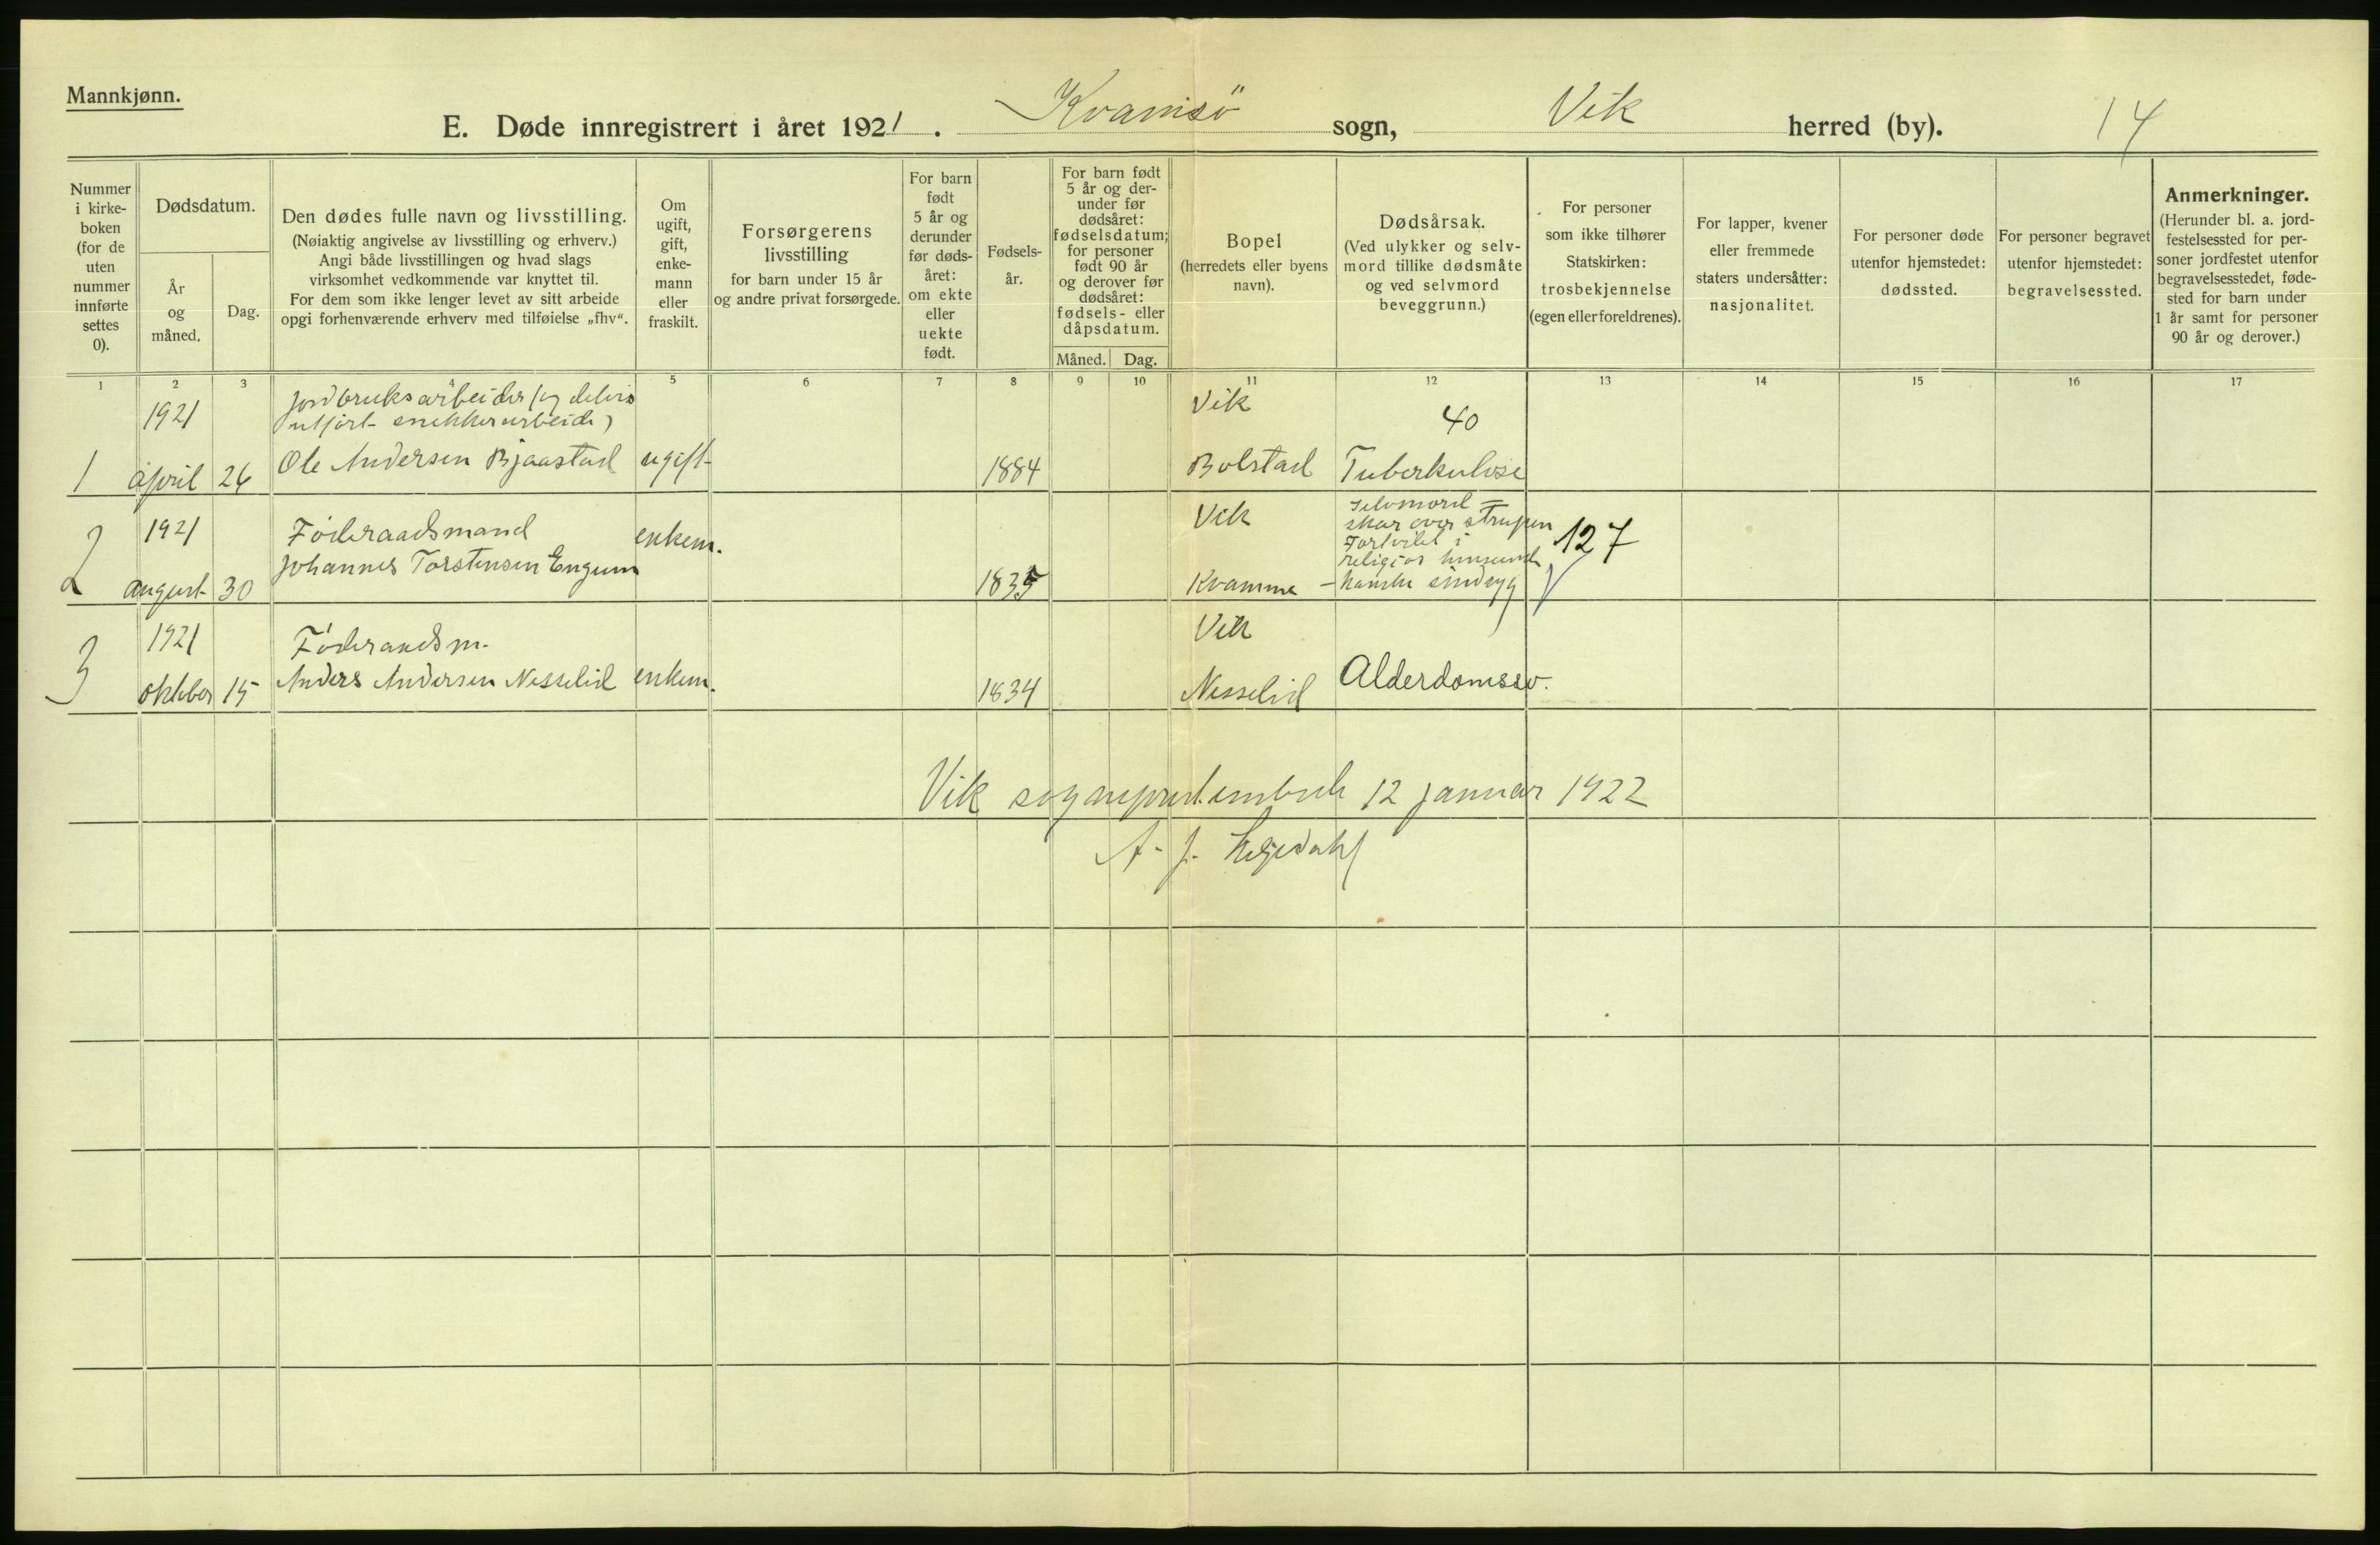 Mannkjønn.
E. Døde innregistrert i året 1921. Kvamsö sogn, Vik herred (by). 14
Nummer i kirkeboken (for de uten nummer innførte settes 0).
Dødsdatum.
År og måned.
Dag.
Den dødes fulle navn og livsstilling.
(Nøiaktig angivelse av livsstilling og erhverv.)
Angi både livsstillingen og hvad slags
virksomhet vedkommende var knyttet til.
For dem som ikke lenger levet av sitt arbeide
opgi forhenværende erhverv med tilføielse „fhv“.
Om ugift, gift, enkemann eller fraskilt.
Forsørgerens
livsstilling
for barn under 15 år
og andre privat forsørgede.
For barn født 5 år og derunder før dødsåret: om ekte eller uekte født.
Fødselsår.
For barn født 5 år og derunder før dødsåret: fødselsdatum; for personer født 90 år og derover før dødsåret: fødsels- eller dåpsdatum.
Måned. Dag.
Bopel
(herredets eller byens
navn).
Dødsårsak.
(Ved ulykker og selvmord tillike dødsmåte
og ved selvmord
beveggrunn.)
For personer
som ikke tilhører
Statskirken:
trosbekjennelse
(egen eller foreldrenes).
For lapper, kvener
eller fremmede
staters undersåtter:
nasjonalitet.
For personer døde
utenfor hjemstedet:
dødssted.
For personer begravet
utenfor hjemstedet:
begravelsessted.
Anmerkninger.
(Herunder bl. a. jordfestelsessted for personer jordfestet utenfor
begravelsesstedet, fødested for barn under
1 år samt for personer
90 år og derover.)
1 2 3 4 5 6 7 8 9 10 11 12 13 14 15 16 17
1921 Jordbruksarbeider (og delvis Vik 40
utført snekkerarbeide)
1 april 26 Ole Andersen Bjaastad ugift 1884 Bolstad Tuberkulose
1921 Föderaadsmand enkem. Vik Selvmord =
skar over strupen
2 august 30 Johannes Torstensen Engum 1835 Kvamme
Fortvilet i
religiøs
- kanske sindsyg 127
1921 Föderaadsm. Vik
3 oktober 15 Anders Andersen Nesselid enkem. 1834 Nesselid Alderdomssv.
Vik sogneprestembede 12 januar 1922
A. J.